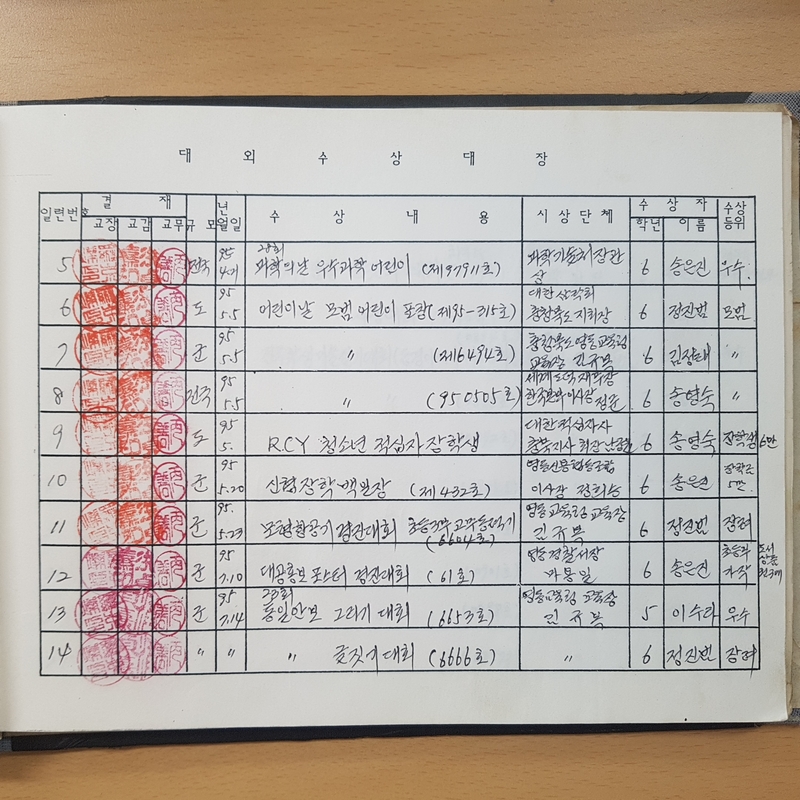 대 외 수 상 대 장
일련번호 결 재 규모 년월일 수 상 내 용 시상단체 수 상 자 수상등위
교장 교감 교무 학년 이름
5 전국 95 4.21 28회 과학의날 우수과학어린이 (제97911호) 과학기술처장관상 6 송은진 우수
6 도 95 5.5 어린이날 모범 어린이 표창(제95-315호) 대한 충청북도지회장 6 정진범 모범
7 군 95 5.5 〃 (제6494호) 충청북도영동교육청 교육장 김규복 6 〃
8 전국 95 5.5 〃 (950505호) 한국본부이사장 6 송영숙 〃
9 도 95 5. R.C.Y 청소년 적십자 장학생 대한적십자사 충북지사 회장 6 송영숙 장학생 6만
10 군 95 5.20 신협장학 (제432호) 영동신용협동조합 이사장 6 송은진 장학금 5만
11 군 95. 5.23 모형항공기경진대회 초등 (6604호) 영동교육청교육장 김규복 6 정진범 장려
12 군 95 7.10 대공홍보포스터 경진대회 (61호) 영동경찰서장 6 송은진 초등부 가작 도서상품
13 군 95 7.14 23회 통일안보 그리기 대회 (6653호) 영동교육청 교육장 김규복 5 이수라 우수
14 〃 〃 〃 글짓기대회 (6666호) 〃 6 정진범 장려